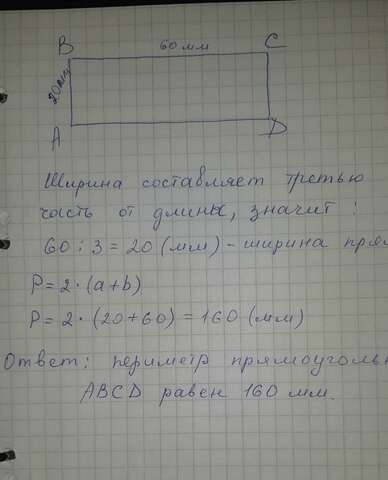 B 60 мм C
20мм
A D
Ширина составляет третью
часть от длины, значит:
60 : 3 = 20 (мм) - ширина
P = 2 · (a + b)
P = 2 · (20 + 60) = 160 (мм)
Ответ: периметр
ABCD равен 160 мм.